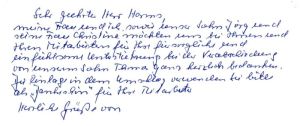 Sehr geehrter Herr Harms,
meine Frau und ich sowie unser Sohn Jörg und
seine Frau Christina möchten uns bei Ihnen und
Ihren Mitarbeitern für Ihr fürsorgliche und
einfühlsame Unterstützung bei der Verabschiedung
von unserem Sohn ganz herzlich bedanken.
Die Einlage in dem Umschlag verwenden Sie bitte
als "Dankeschön" für Ihre Mitarbeiter
Herzliche Grüße von